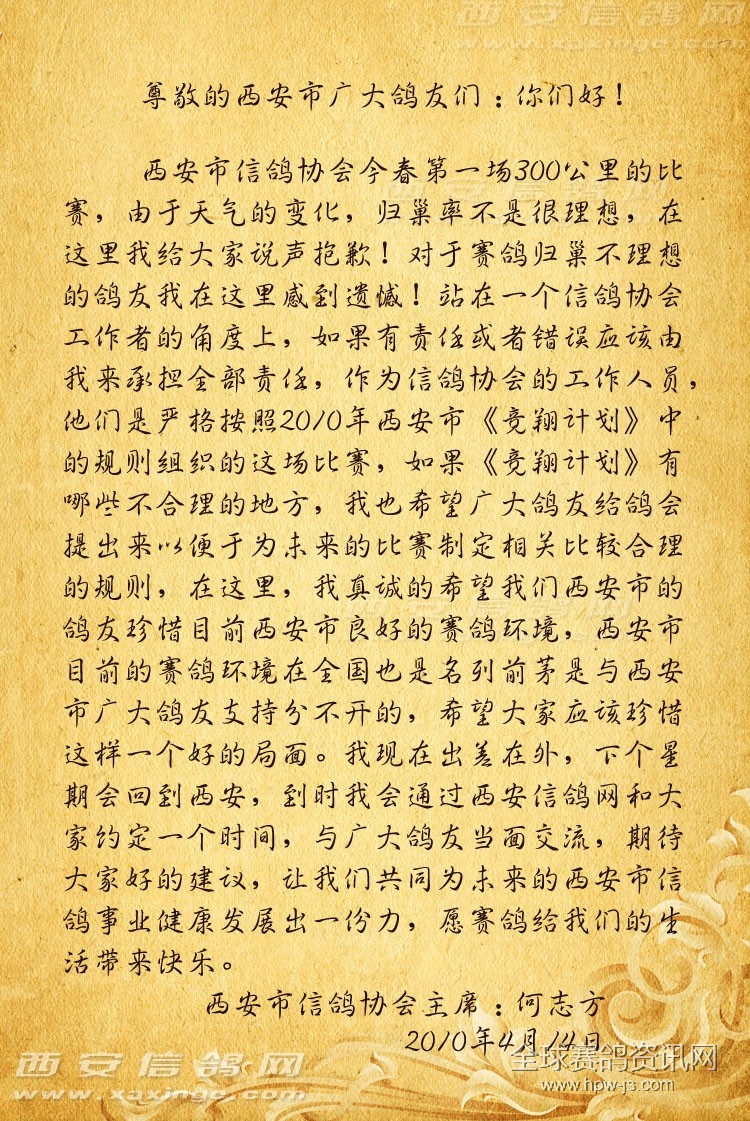 西安信鸽网
www.xaxingc.com
尊敬的西安市广大鸽友们：你们好！
西安市信鸽协会今春第一场300公里的比
赛，由于天气的变化，归巢率不是很理想，在
这里我给大家说声抱歉！对于赛鸽归巢不理想
的鸽友我在这里感到遗憾！站在一个信鸽协会
工作者的角度上，如果有责任或者错误应该由
我来承担全部责任，作为信鸽协会的工作人员，
他们是严格按照2010年西安市《竞翔计划》中
的规则组织的这场比赛，如果《竞翔计划》有
哪些不合理的地方，我也希望广大鸽友给鸽会
提出来以便于为未来的比赛制定相关比较合理
的规则，在这里，我真诚的希望我们西安市的
鸽友珍惜目前西安市良好的赛鸽环境，西安市
目前的赛鸽环境在全国也是名列前茅是与西安
市广大鸽友支持分不开的，希望大家应该珍惜
这样一个好的局面。我现在出差在外，下个星
期会回到西安，到时我会通过西安信鸽网和大
家约定一个时间，与广大鸽友当面交流，期待
大家好的建议，让我们共同为未来的西安市信
鸽事业健康发展出一份力，愿赛鸽给我们的生
活带来快乐。
西安市信鸽协会主席：何志方
2010年4月14日
西安信鸽网
www.xaxingc.com
全球赛鸽资讯网
www.hpw-js.com